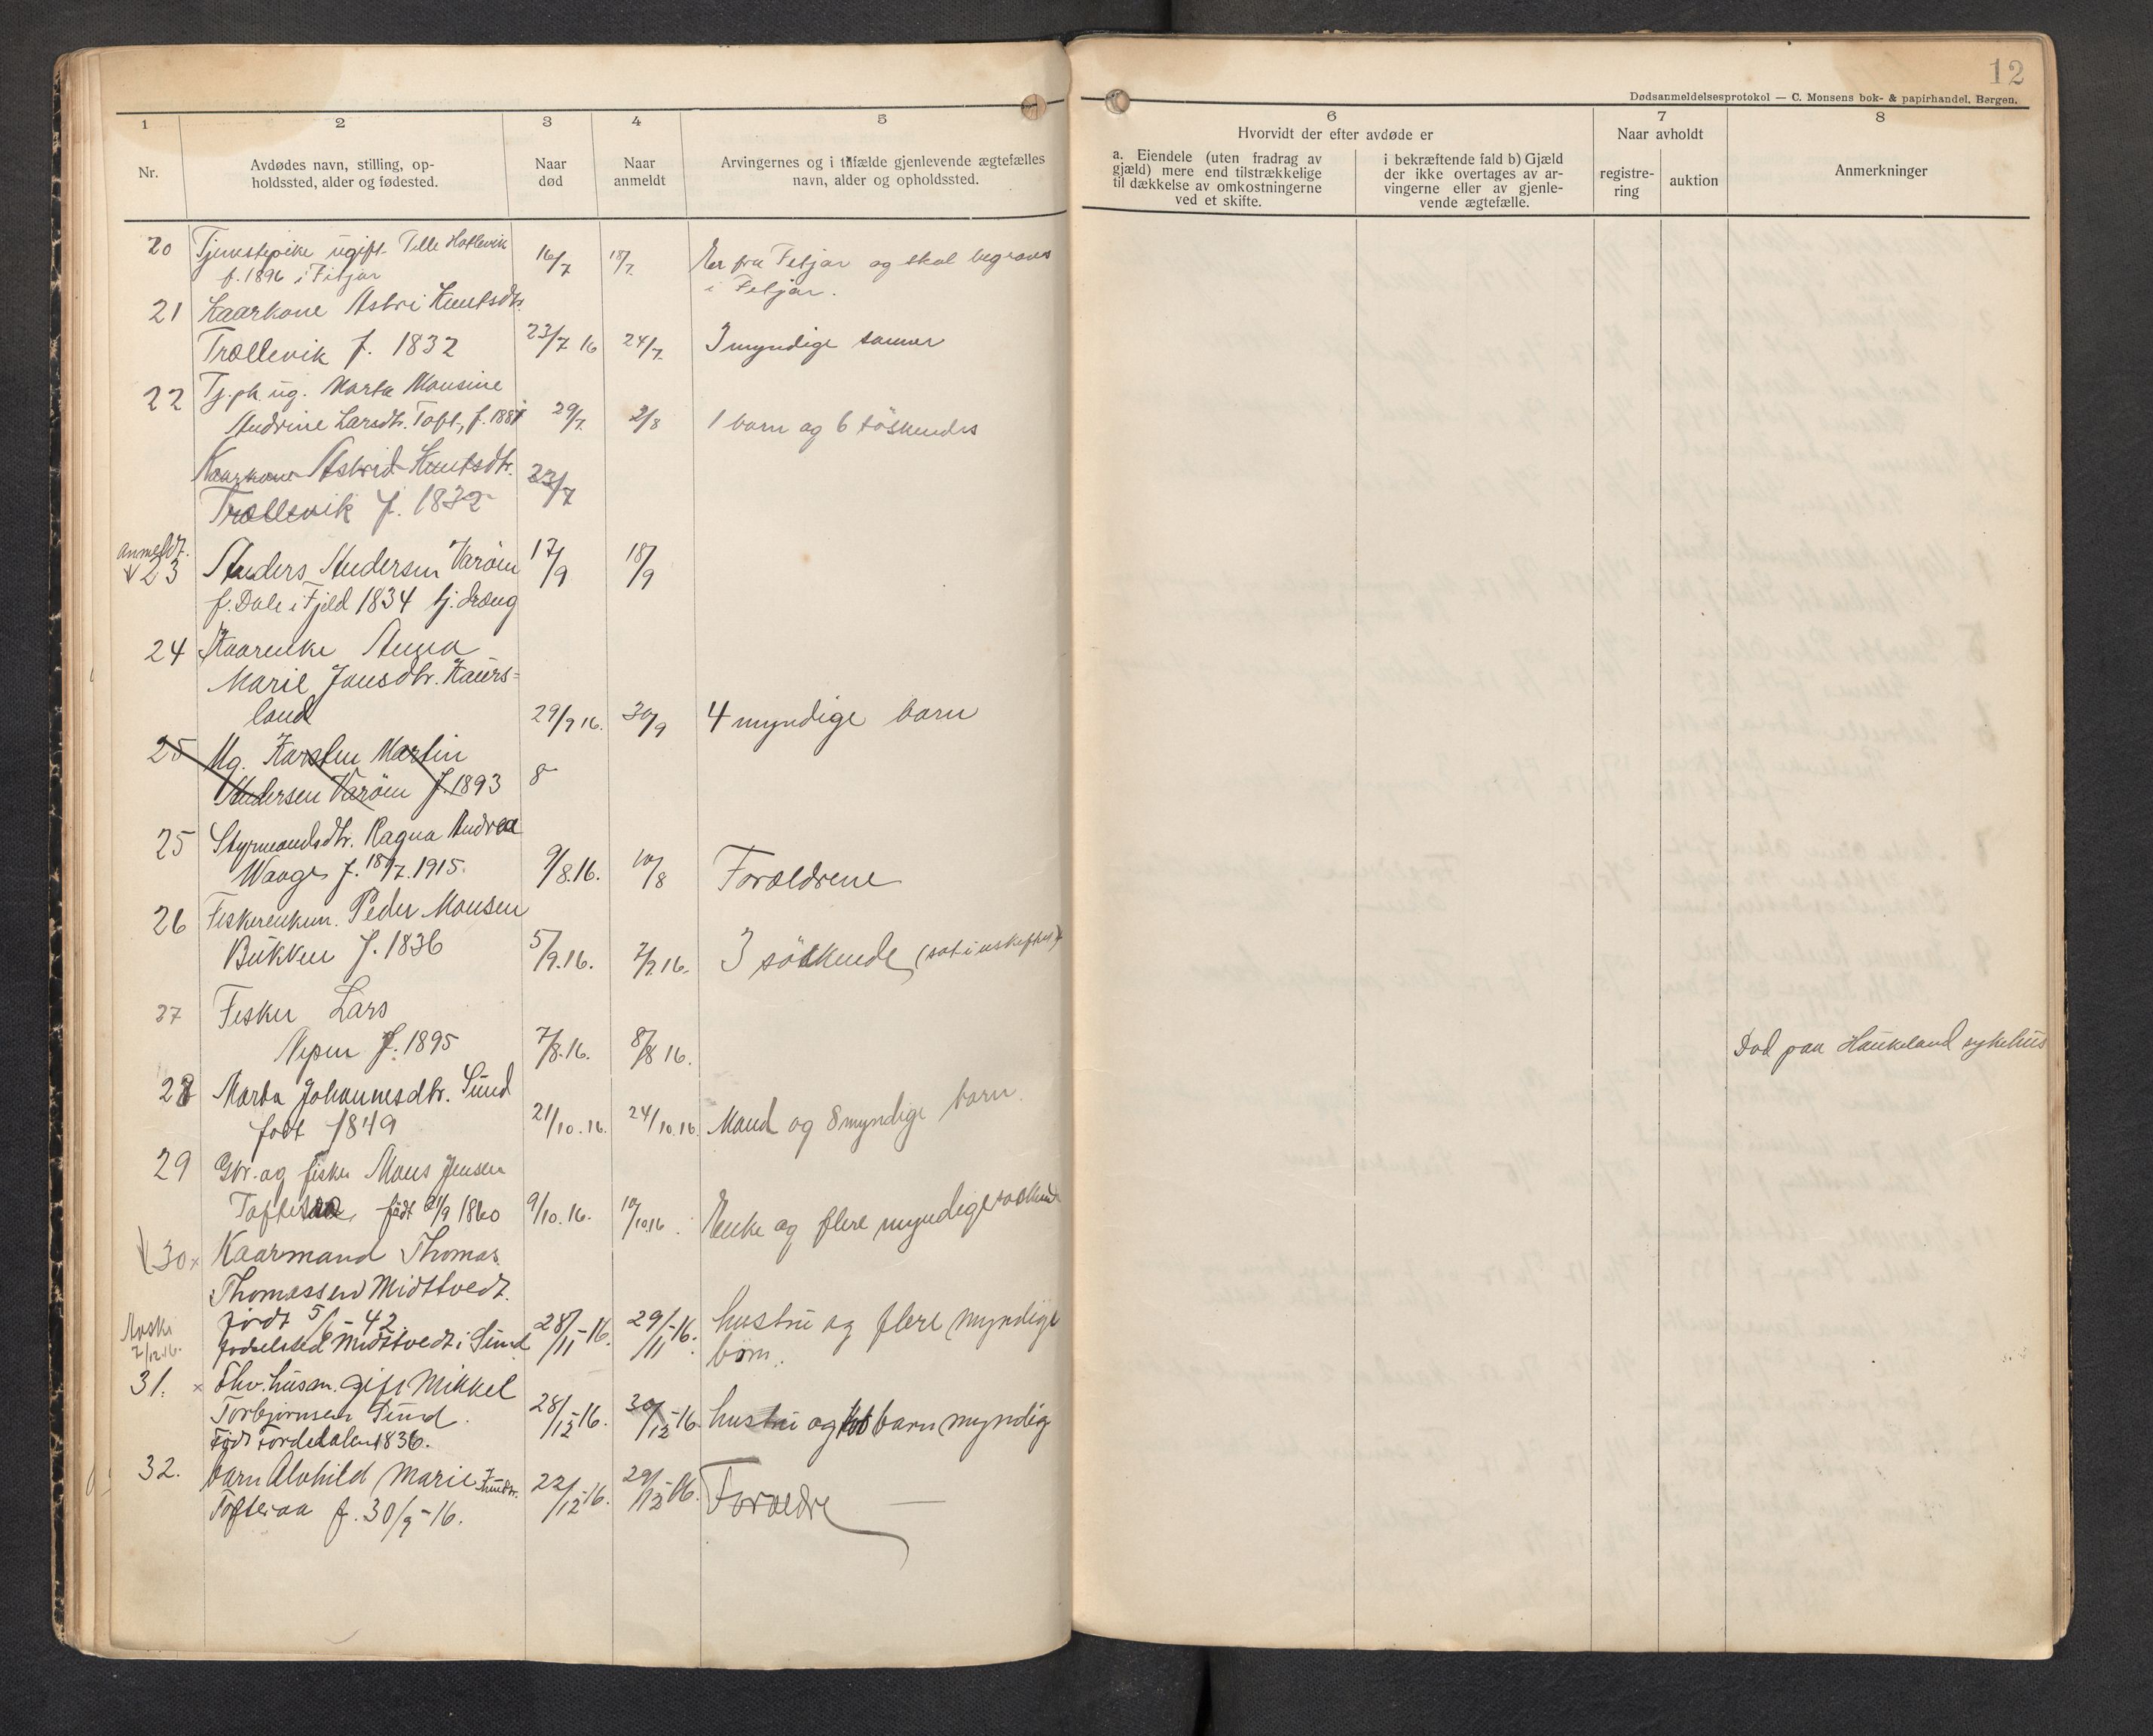 12
Dødsanmeldelsesprotokol — C. Monsens bok- & papirhandel, Bergen.
1
2
3
4
5
6
7
8
Nr.
Avdødes navn, stilling, op-
holdssted, alder og fødested.
Naar
død
Naar
anmeldt
Arvingernes og i tilfælde gjenlevende ægtefælles
navn, alder og opholdssted.
Hvorvidt der efter avdøde er
a. Eiendele (uten fradrag av
gjæld) mere end tilstrækkelige
til dækkelse av omkostningerne
ved et skifte.
i bekræftende fald b) Gjæld
der ikke overtages av ar-
vingerne eller av gjenle-
vende ægtefælle.
Naar avholdt
registre-
ring
auktion
Anmerkninger
20 Tjenstepike ugift Hatlevik 16/7 18/7 Er fra Fitjar og skal begraves
f. 1896 i Fitjar i Fitjar.
21 Kaarkone Astri Knutsdtr.
Trællevik f. 1832 23/7 16 24/7 3 myndige sønner
22 Tj.pk. ug. Marta Monsine
Andrine Larsdtr. Toft, f. 29/7 2/8 1 barn og 6 søskende
Kaarkone Astrid Knutsdtr. 23/7
Trællevik f. 1832
anmeldt.
23 Anders Andersen Varøen 17/9 18/9
f. Dale i Fjeld 1834 tj. dræng
24 Kaarenke Anna
Marie Jonsdtr. Kaurs-
land 29/9 16. 30/9 4 myndige barn
25 Ug. Karsten Martin
Andersen Varøen f. 1893 8
25 Styrmandsdtr. Ragna Andrea
Waage f. 18/7.1915. 9/8.16. 10/8 Forældrene
26 Fiskerenkem. Peder Monsen
Bukken f. 1836 5/9.16. 7/9.16. 3 søskende (sat i uskiftet)
27 Fisker Lars
Nepen f. 1895 7/8.16. 8/8 16. Død paa Haukeland sykehus
28 Marta Johannesdtr. Sund
født 1849 21/10.16. 24/10.16. Mand og 8 myndige barn.
29 Gbr. og fisker Mons Jensen
født /9 1860 9/10.16. 10/10 16. Enke og flere myndige søskende
30 x Kaarmand Thomas
Thomassen Midttvedt.
født 5/6 - 42 28/11-16. 29/11-16. hustru og flere myndige
fødselssted Midttvedt i Sund børn.
7/12.16.
31. x Fhv. husm. gift Mikkel
Torbjørnsen Sund. 28/12-16. 30/12-16. hustru og barn myndig
Født 1836.
32. barn Alvhild Marie 22/12-16. 29/12-16. Forældre —
Tofteraa f. 30/9-16.